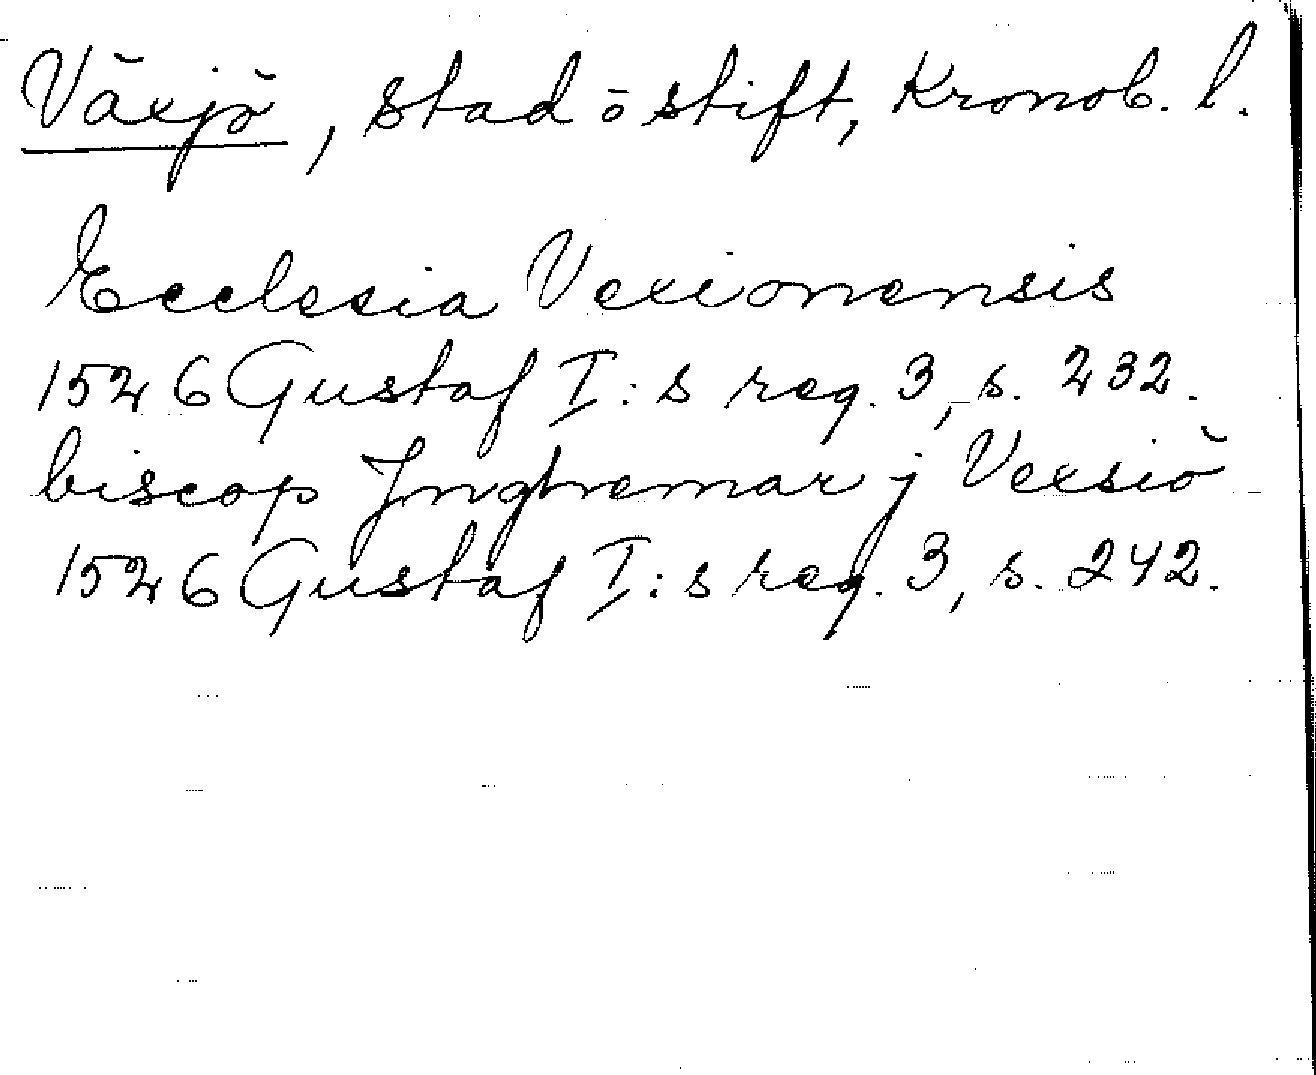 Växjö, stad ö stift, Kronob. l.
Ecclesia Vexionensis
1526 Gustaf I:s reg. 3, s. 232.
biscop Jnghemar j Vexsiö
1526 Gustaf I:s reg. 3, s. 242.